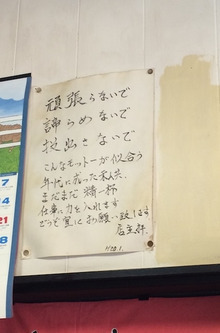 頑張らないで
諦らめないで
投出さないで
こんなモットーが似合う
年代に成った私共、
まだまだ精一杯
仕事に力を入れます
どうぞ宜にお願い致します
店主拝
7
14
21
28